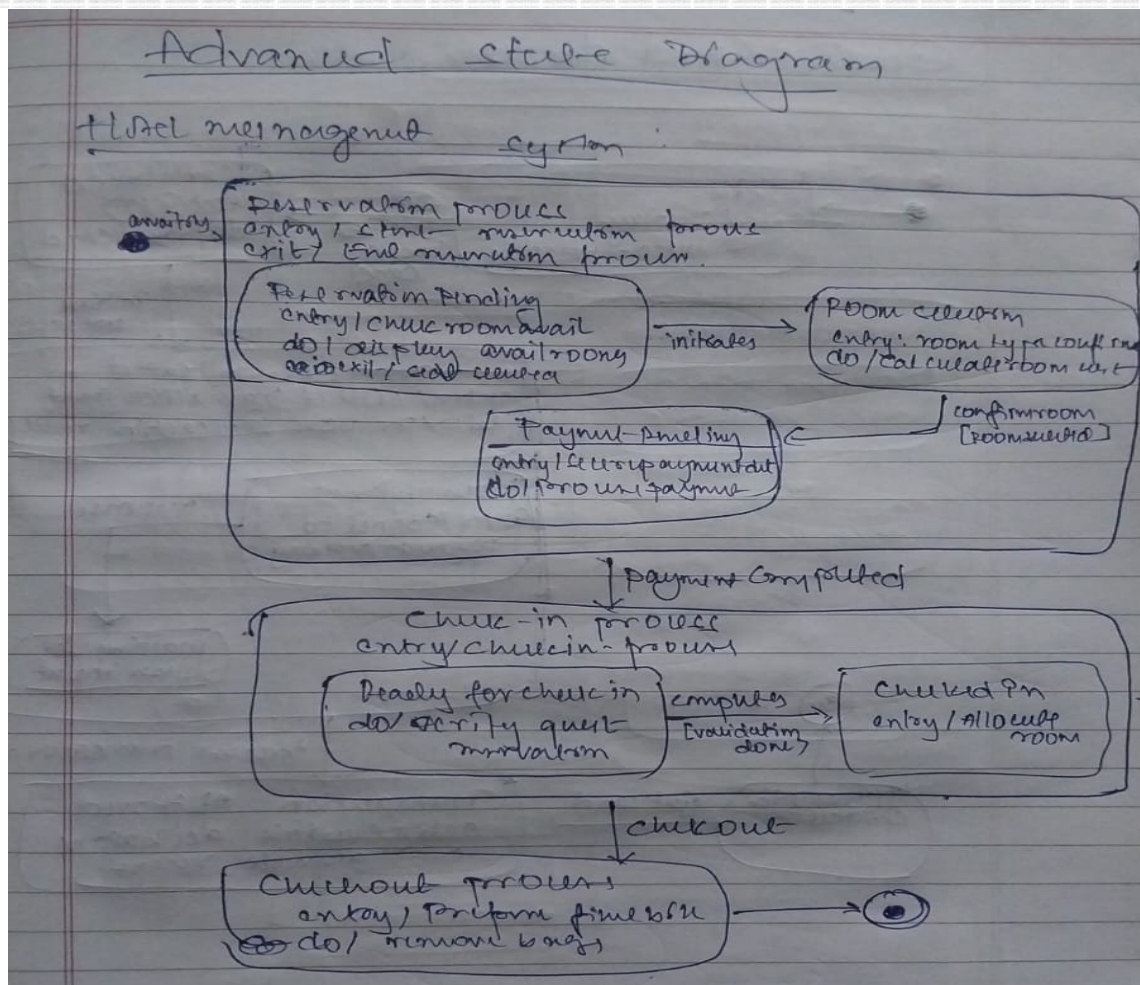 Advanced State Diagram
Hotel management system
awaiting
Reservation process
entry / start reservation process
exit / End reservation process.
Reservation Pending
entry / check room avail
do / display avail rooms
exit /
initiates
Room selection
entry: room type confirm
do / calculate room cost
confirmroom
[Roomselected]
Payment Pending
entry / payment
do / process payment
Payment Completed
Check-in process
entry / checkin-process
Ready for check in
do / verify guest
reservation
completes
[validation
done]
Checked in
entry / Allocate
room
checkout
Checkout process
entry / Perform
do / remove